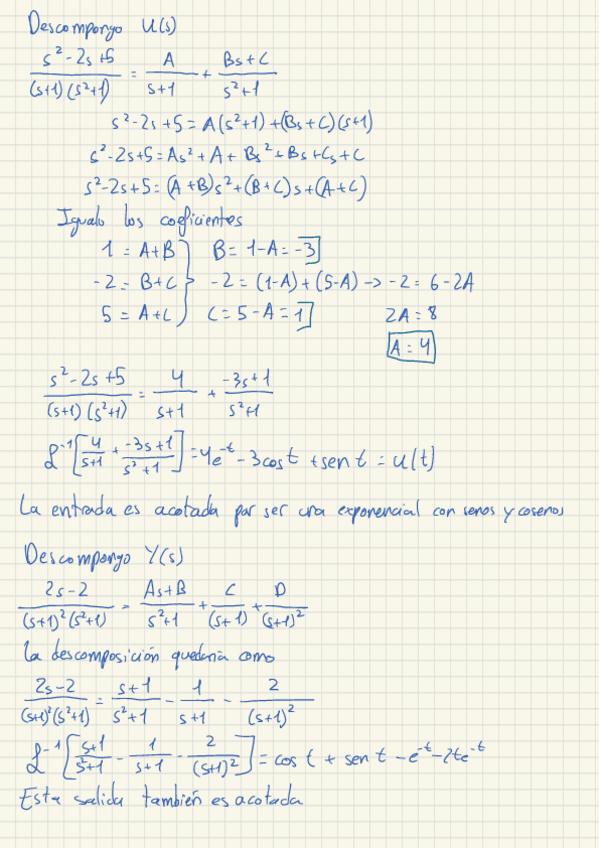 Descompongo U(s)
s²-2s+5/(s+1)(s²+1) = A/s+1 + Bs+C/s²+1
s²-2s+5 = A(s²+1)+(Bs+C)(s+1)
s²-2s+5 = As²+A+Bs²+Bs+Cs+C
s²-2s+5 = (A+B)s²+(B+C)s+(A+C)
Igualo los coeficientes
1 = A+B } B = 1-A = -3
-2 = B+C } -2 = (1-A)+(5-A) -> -2 = 6-2A
5 = A+C } C = 5-A = 1 2A = 8
A = 4
s²-2s+5/(s+1)(s²+1) = 4/s+1 + -3s+1/s²+1
ℒ⁻¹[4/s+1 + -3s+1/s²+1] = 4e⁻ᵗ - 3cost + sen t = u(t)
La entrada es acotada por ser una exponencial con senos y cosenos
Descompongo Y(s)
2s-2/(s+1)²(s²+1) = As+B/s²+1 + C/(s+1) + D/(s+1)²
la descomposición quedaría como
2s-2/(s+1)²(s²+1) = s+1/s²+1 - 1/s+1 - 2/(s+1)²
ℒ⁻¹[s+1/s²+1 - 1/s+1 - 2/(s+1)²] = cos t + sen t - e⁻ᵗ - 2te⁻ᵗ
Esta salida también es acotada